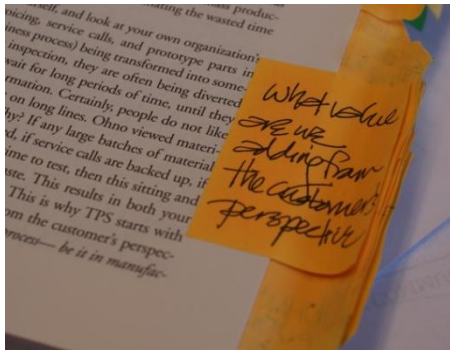 ating the wasted time
self, and look at your own organization's
oicing, service calls, and prototype parts in
iness process) being transformed into some-
inspection, they are often being diverted
wait for long periods of time, until they
rmation. Certainly, people do not like
on long lines. Ohno viewed materi-
hy? If any large batches of material
d, if service calls are backed up, if
ime to test, then this sitting and
aste. This results in both your
This is why TPS starts with
om the customer's perspec-
process— be it in manufac-
what value
are we
adding from
the customer's
perspective